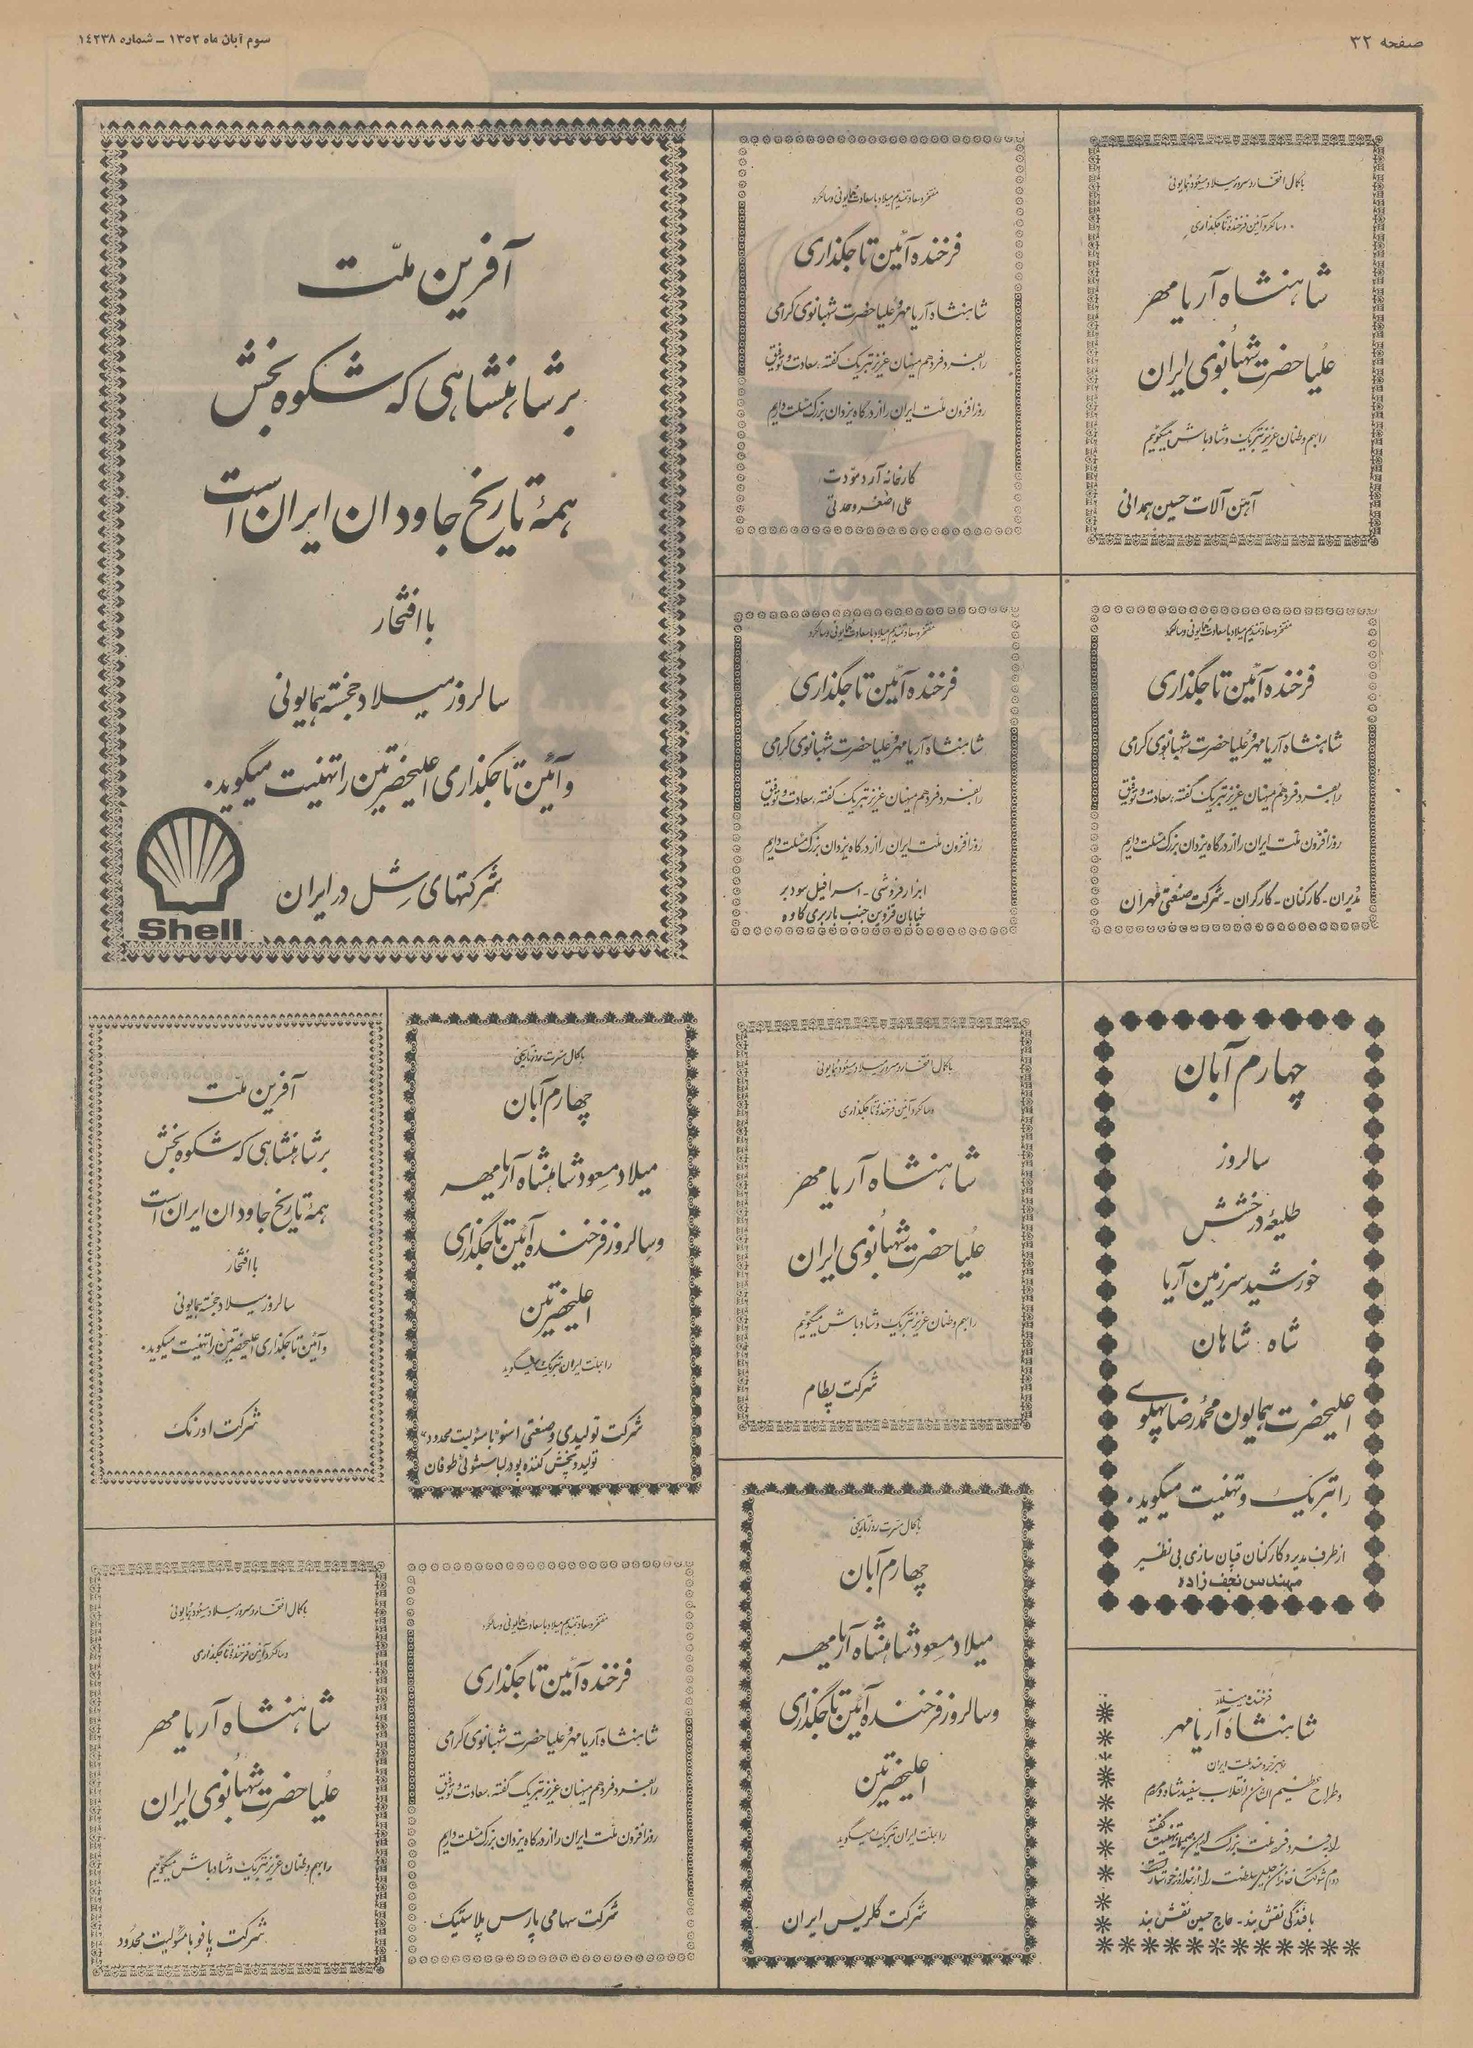 صفحه ۳۲
سوم آبان ماه ۱۳۵۲ - شماره ۱۴۲۳۸
با کمال افتخار و سرور میلاد مسعود همایونی
و سالگرد آئین فرخنده تاجگذاری
شاهنشاه آریامهر
علیا حضرت شهبانوی ایران
را بهم وطنان عزیز تبریک و شادباش میگوئیم
آهن آلات حسین همدانی
مفتخر و سعادتمندیم میلاد با سعادت همایونی و سالگرد
فرخنده آئین تاجگذاری
شاهنشاه آریامهر و علیا حضرت شهبانوی گرامی
را بفرد فرد هم میهنان عزیز تبریک گفته، سعادت و توفیق
روزافزون ملت ایران را از درگاه یزدان بزرگ مسئلت داریم
کارخانه آرد مودت
علی اصغر وحدتی
آفرین ملّت
بر شاهنشاهی که شکوه بخش
همهٔ تاریخ جاودان ایران است
با افتخار
سالروز میلاد خجسته همایونی
و آئین تاجگذاری اعلیحضرتین را تهنیت میگوید.
شرکتهای شل در ایران
Shell
مفتخر و سعادتمندیم میلاد با سعادت همایونی و سالگرد
فرخنده آئین تاجگذاری
شاهنشاه آریامهر و علیا حضرت شهبانوی گرامی
را بفرد فرد هم میهنان عزیز تبریک گفته، سعادت و توفیق
روزافزون ملت ایران را از درگاه یزدان بزرگ مسئلت داریم
مدیران - کارکنان - کارگران - شرکت صنعتی تهران
مفتخر و سعادتمندیم میلاد با سعادت همایونی و سالگرد
فرخنده آئین تاجگذاری
شاهنشاه آریامهر و علیا حضرت شهبانوی گرامی
را بفرد فرد هم میهنان عزیز تبریک گفته، سعادت و توفیق
روزافزون ملت ایران را از درگاه یزدان بزرگ مسئلت داریم
ابزار فروشی - اسرافیل سودبر
خیابان قزوین جنب باربری کاوه
چهارم آبان
سالروز
طلیعهٔ درخشش
خورشید سرزمین آریا
شاه شاهان
اعلیحضرت همایون محمد رضا پهلوی
را تبریک و تهنیت میگوید.
از طرف مدیر و کارکنان قپان سازی بی نظیر
مهندس نجف زاده
با کمال افتخار و سرور میلاد مسعود همایونی
و سالگرد آئین فرخنده تاجگذاری
شاهنشاه آریامهر
علیا حضرت شهبانوی ایران
را بهم وطنان عزیز تبریک و شادباش میگوئیم
شرکت پطام
با کمال مسرت روز تاریخی
چهارم آبان
میلاد مسعود شاهنشاه آریامهر
و سالروز فرخنده آئین تاجگذاری
اعلیحضرتین
را بملت ایران تبریک میگوید
شرکت تولیدی و صنعتی اسنو "با مسئولیت محدود"
تولید و پخش کننده پودر لباسشوئی طوفان
آفرین ملّت
بر شاهنشاهی که شکوه بخش
همهٔ تاریخ جاودان ایران است
با افتخار
سالروز میلاد خجسته همایونی
و آئین تاجگذاری اعلیحضرتین را تهنیت میگوید.
شرکت اورنگ
فرخنده میلاد
شاهنشاه آریامهر
رهبر خردمند ملت ایران
و طراح عظیم الشأن انقلاب سفید شاه و مردم
را بفرد فرد ملت بزرگ ایران صمیمانه تهنیت گفته
بافندگی نقش بند - حاج حسین نقش بند
با کمال مسرت روز تاریخی
چهارم آبان
میلاد مسعود شاهنشاه آریامهر
و سالروز فرخنده آئین تاجگذاری
اعلیحضرتین
را بملت ایران تبریک میگوید
شرکت گلریس ایران
مفتخر و سعادتمندیم میلاد با سعادت همایونی و سالگرد
فرخنده آئین تاجگذاری
شاهنشاه آریامهر و علیا حضرت شهبانوی گرامی
را بفرد فرد هم میهنان عزیز تبریک گفته، سعادت و توفیق
روزافزون ملت ایران را از درگاه یزدان بزرگ مسئلت داریم
شرکت سهامی پارس پلاستیک
با کمال افتخار و سرور میلاد مسعود همایونی
و سالگرد آئین فرخنده تاجگذاری
شاهنشاه آریامهر
علیا حضرت شهبانوی ایران
را بهم وطنان عزیز تبریک و شادباش میگوئیم
شرکت پافو با مسئولیت محدود